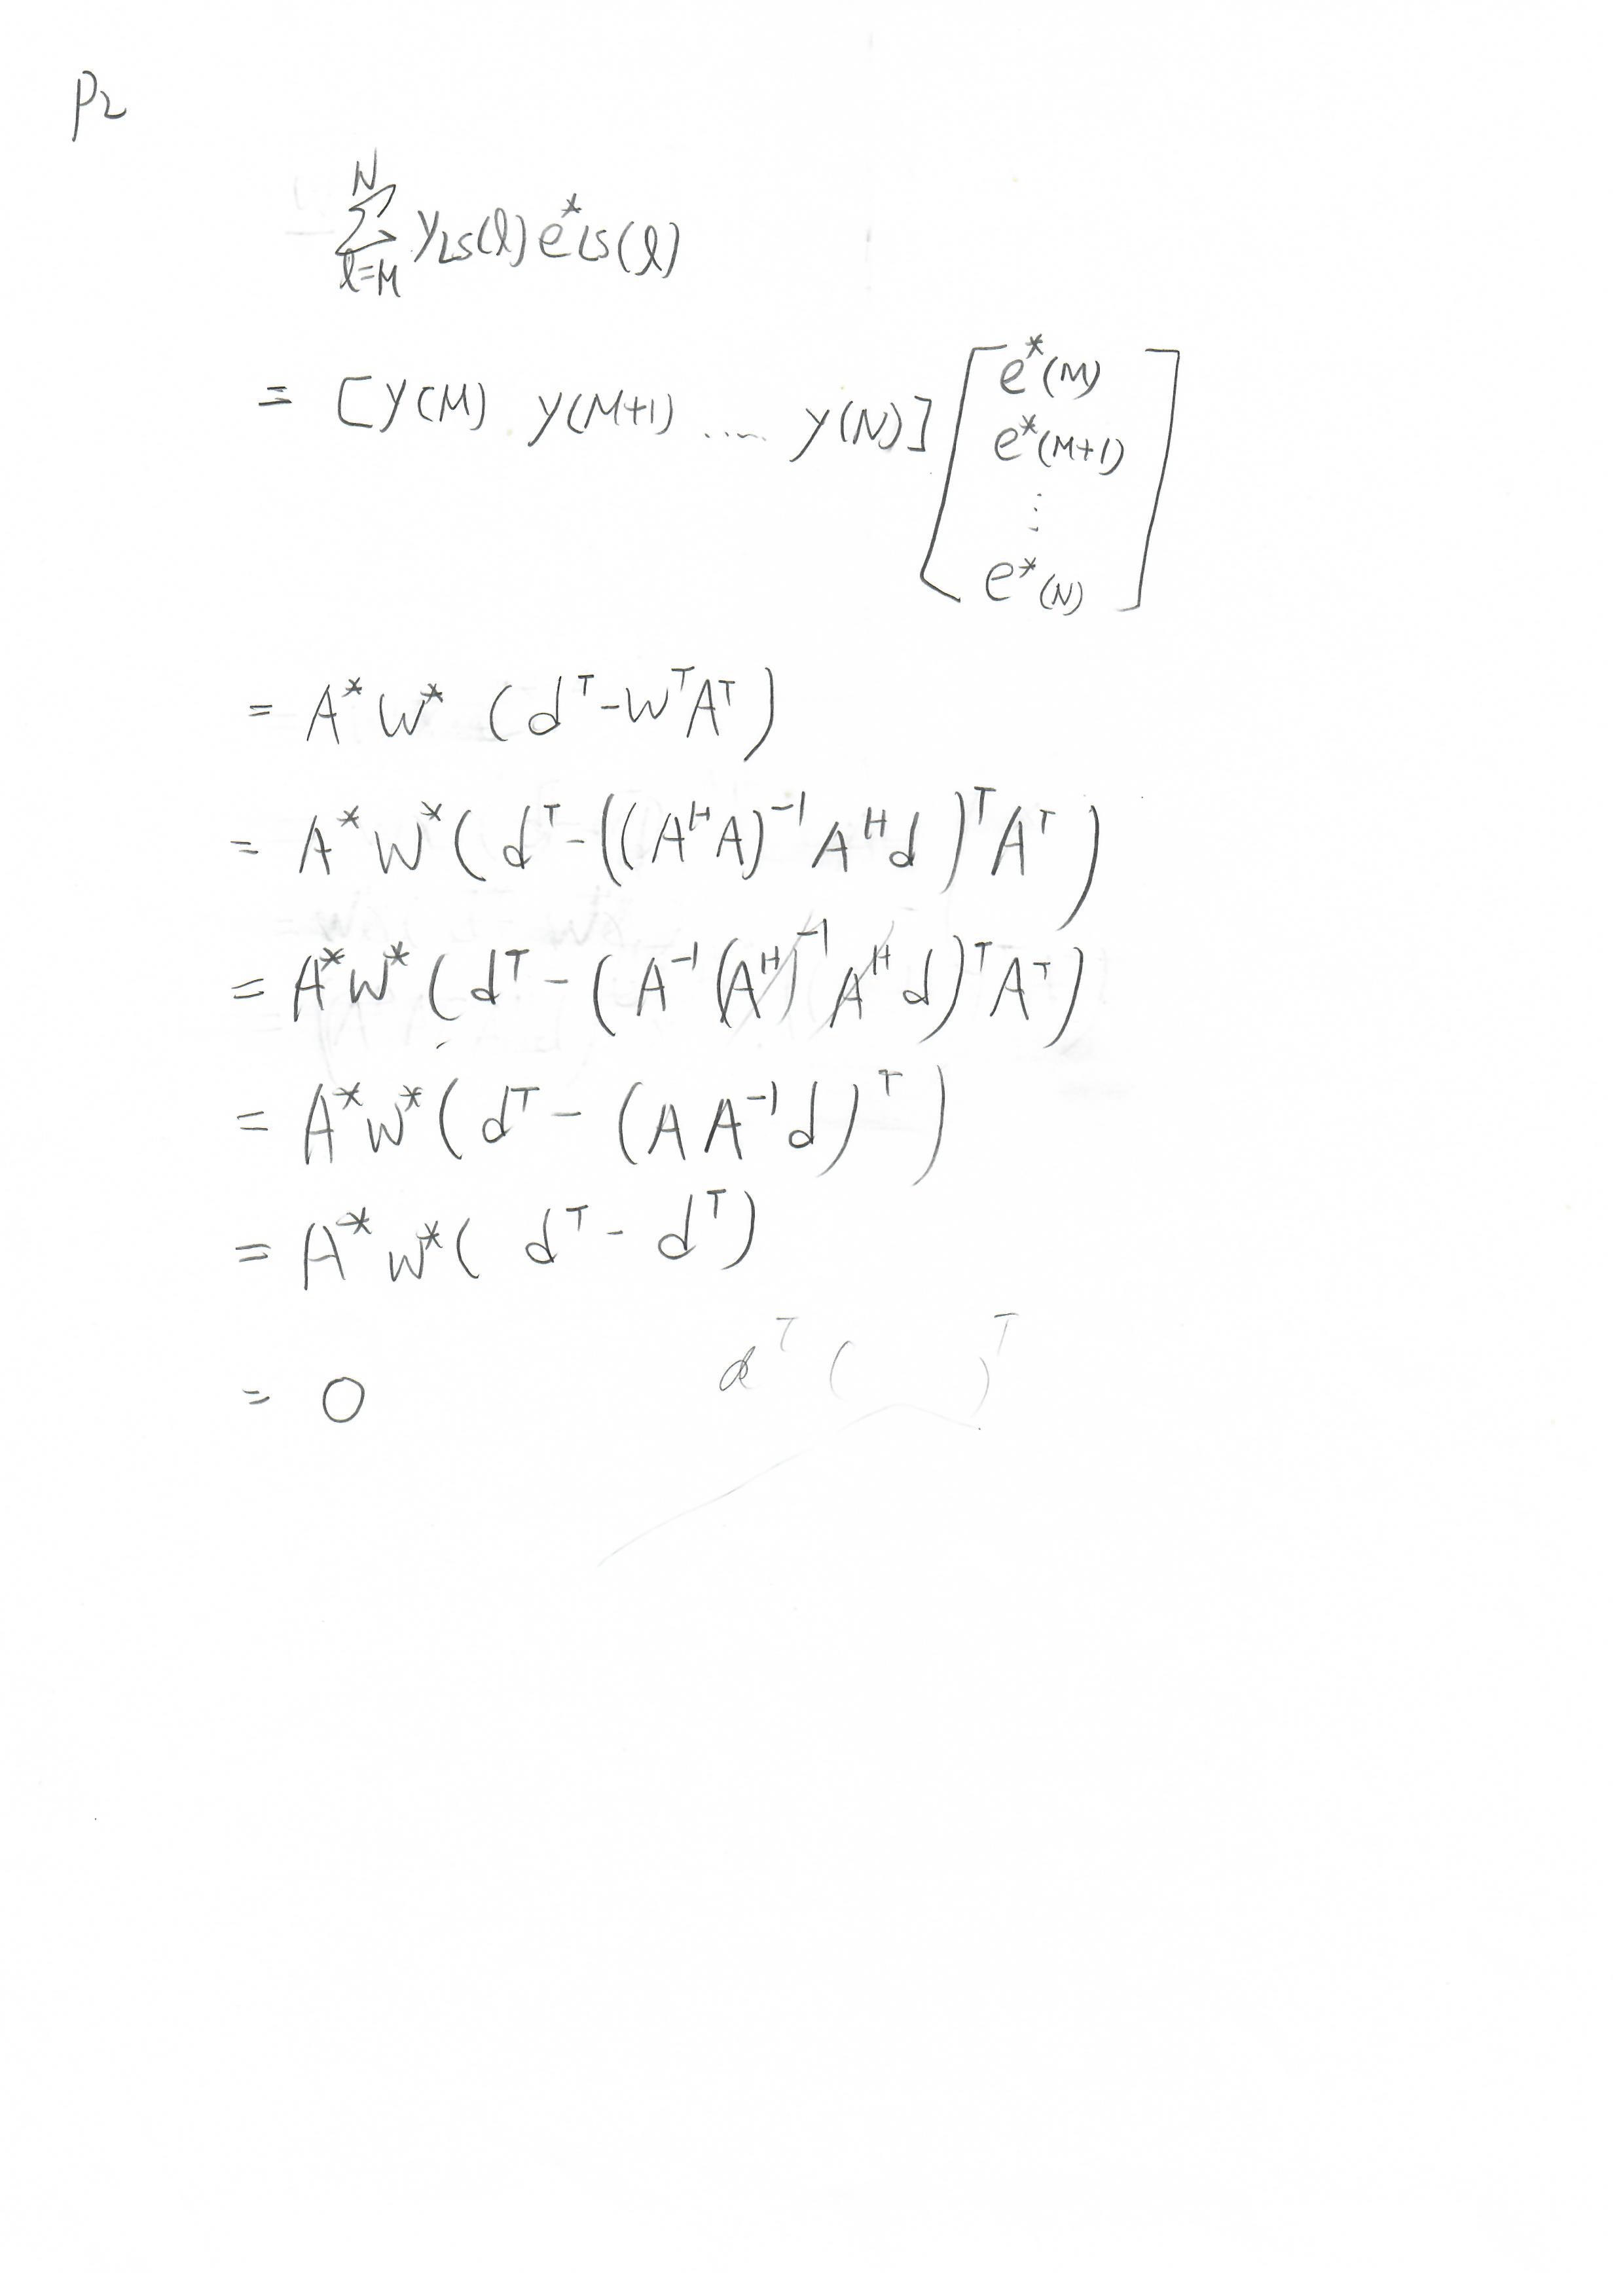 P2
N
∑ y_LS(l) e*_LS(l)
l=M
= [y(M) y(M+1) ..... y(N)] [e*(M)
e*(M+1)
⋮
e*(N)]
= A* W* (d^T - W^T A^T)
= A* W* (d^T - ((A^H A)^-1 A^H d)^T A^T)
= A* W* (d^T - (A^-1 (A^H)^-1 A^H d)^T A^T)
= A* W* (d^T - (A A^-1 d)^T)
= A* W* (d^T - d^T)
= 0